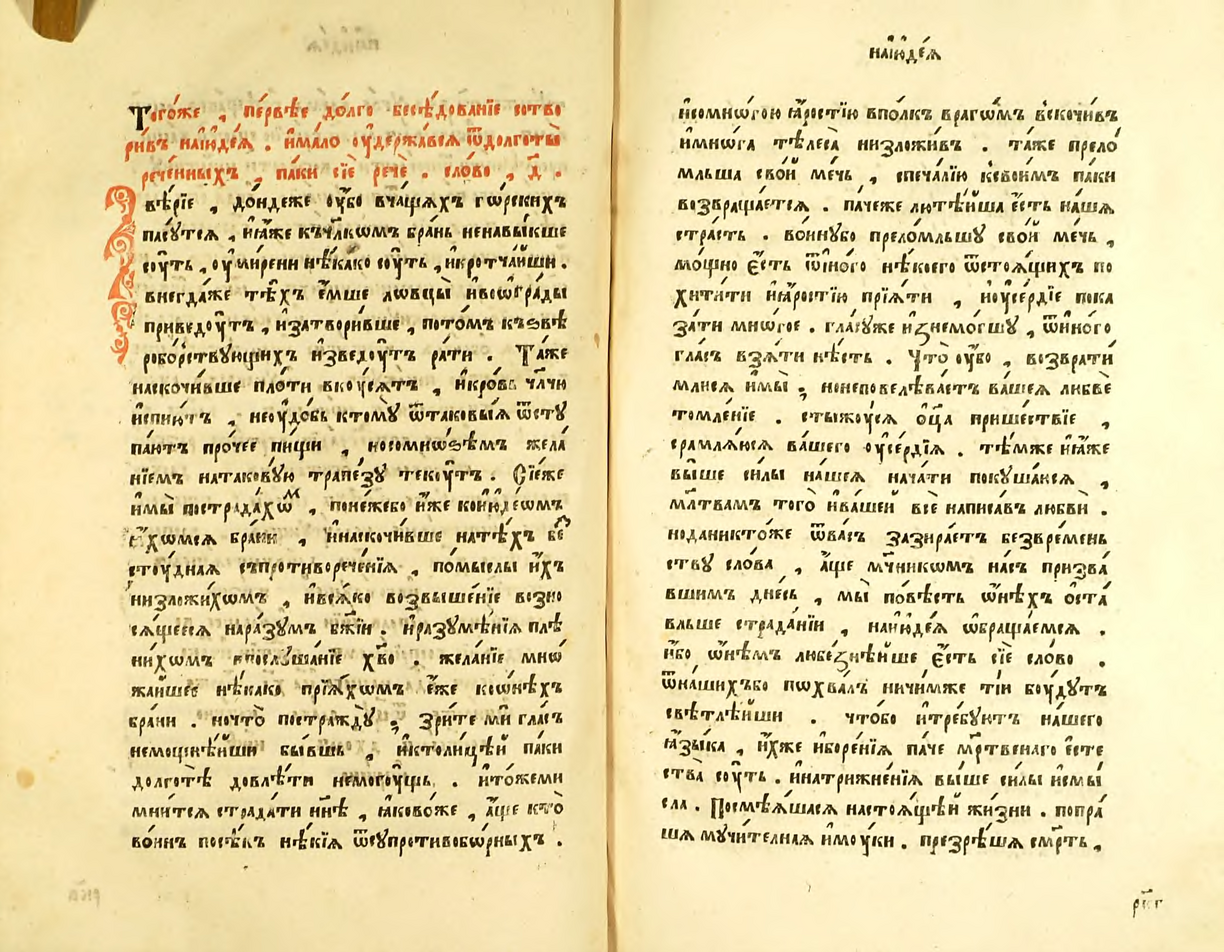 Тогоже , первѣе долго бесѣдованїе сотво
ривъ наіюдеѧ . ѝмало ѹдержавсѧ ѿдолготы
реченныхъ , паки сїе рече . слово , д҃ .
ѕвѣрїе , дондеже ѹбо вчащѧхъ гѡрскихъ
пасутсѧ , иꙗже къчл҃комъ брань ненавыкше
сѹть , ѹмирени нѣкако сѹть , икротчайши .
внегдаже тѣхъ ємше лѡвцы ивоѡграды
приведѹтъ , изатворивше , потомъ къѕвѣ
роборствующихъ изведѹтъ рати . Таже
наскочивше плоти вкѹсѧтъ , икровь чл҃чю
испиютъ , неѹдобь ктому ѿтаковыѧ ѿсту
паютъ прочее пищи , носомноѕѣмъ жела
нїемъ натаковую трапезу текѹтъ . Сїеже
имы пострадахѡм , понежебо иже коиюдеѡмъ
ꙗхомсѧ брани , инаскочивше натѣхъ бе
стѹднаѧ съпротивореченїѧ , помыслы ихъ
низложихомъ , ивсѧко возвышенїе возно
сѧщеесѧ наразумъ бж҃їи . иразумѣнїѧ плѣ
нихомъ впослушанїе хв҃о . желанїе мнѡ
жайшее нѣкако прїѧхомъ еже коѡнѣхъ
брани . ночто постражду ; зрите ми гласъ
немощнѣйши бывшь , иктолицѣй паки
долготѣ довлѣти немогѹщь . итожеми
мнитсѧ страдати нн҃ѣ , ꙗковоже , аще кто
воинъ посѣкъ нѣкїѧ ѿсупротивоборныхъ .
наіюдеѧ
исомногою ꙗростїю вполкъ врагѡмъ вскочивъ
имнѡга тѣлеса низложивъ . таже прело
мльша свой мечь , спечалїю ксвоимъ паки
возвращаетсѧ . пачеже лютѣйша єсть нашѧ
страсть . воинубо преломльшу свой мечь ,
мощно єсть ѿиного нѣкоего ѿстоѧщихъ по
хитити иꙗростїю прїѧти , иѹсердїе пока
зати многое . гласуже изнемогшу , ѿиного
гласъ взѧти нѣсть . Что ѹбо , возврати
млисѧ имы ; нонеповелѣваетъ вашеѧ любве
томленїе . стыжѹсѧ оц҃а пришествїе ,
срамлѧюсѧ вашего ѹсердїѧ . тѣмже иꙗже
выше силы нашеѧ начати покушаюсѧ ,
мл҃твамъ того ивашей все написавъ любви .
ноданиктоже ѿвасъ зазираетъ безвремень
ству слова , аще мч҃никѡмъ насъ призва
вшимъ днесь , мы повѣсть ѡнѣхъ оста
вльше страданїи , наиюдеѧ ѡбращаемсѧ .
ибо ѡнѣмъ любезнѣйше єсть сїе слово .
ѿнашихъбо пѡхвалъ ничимже тіи бѹдутъ
свѣтлѣйши . чтобо итребуютъ нашего
ꙗзыка , ихже иборенїѧ паче мр҃твенаго есте
ства сѹть . инатрижненїѧ выше силы исмы
сла . Посмѣѧшасѧ настоѧщѣй жизни . попра
шѧ мучителнаѧ имѹки . презрѣшѧ смр҃ть ,
рк҃г